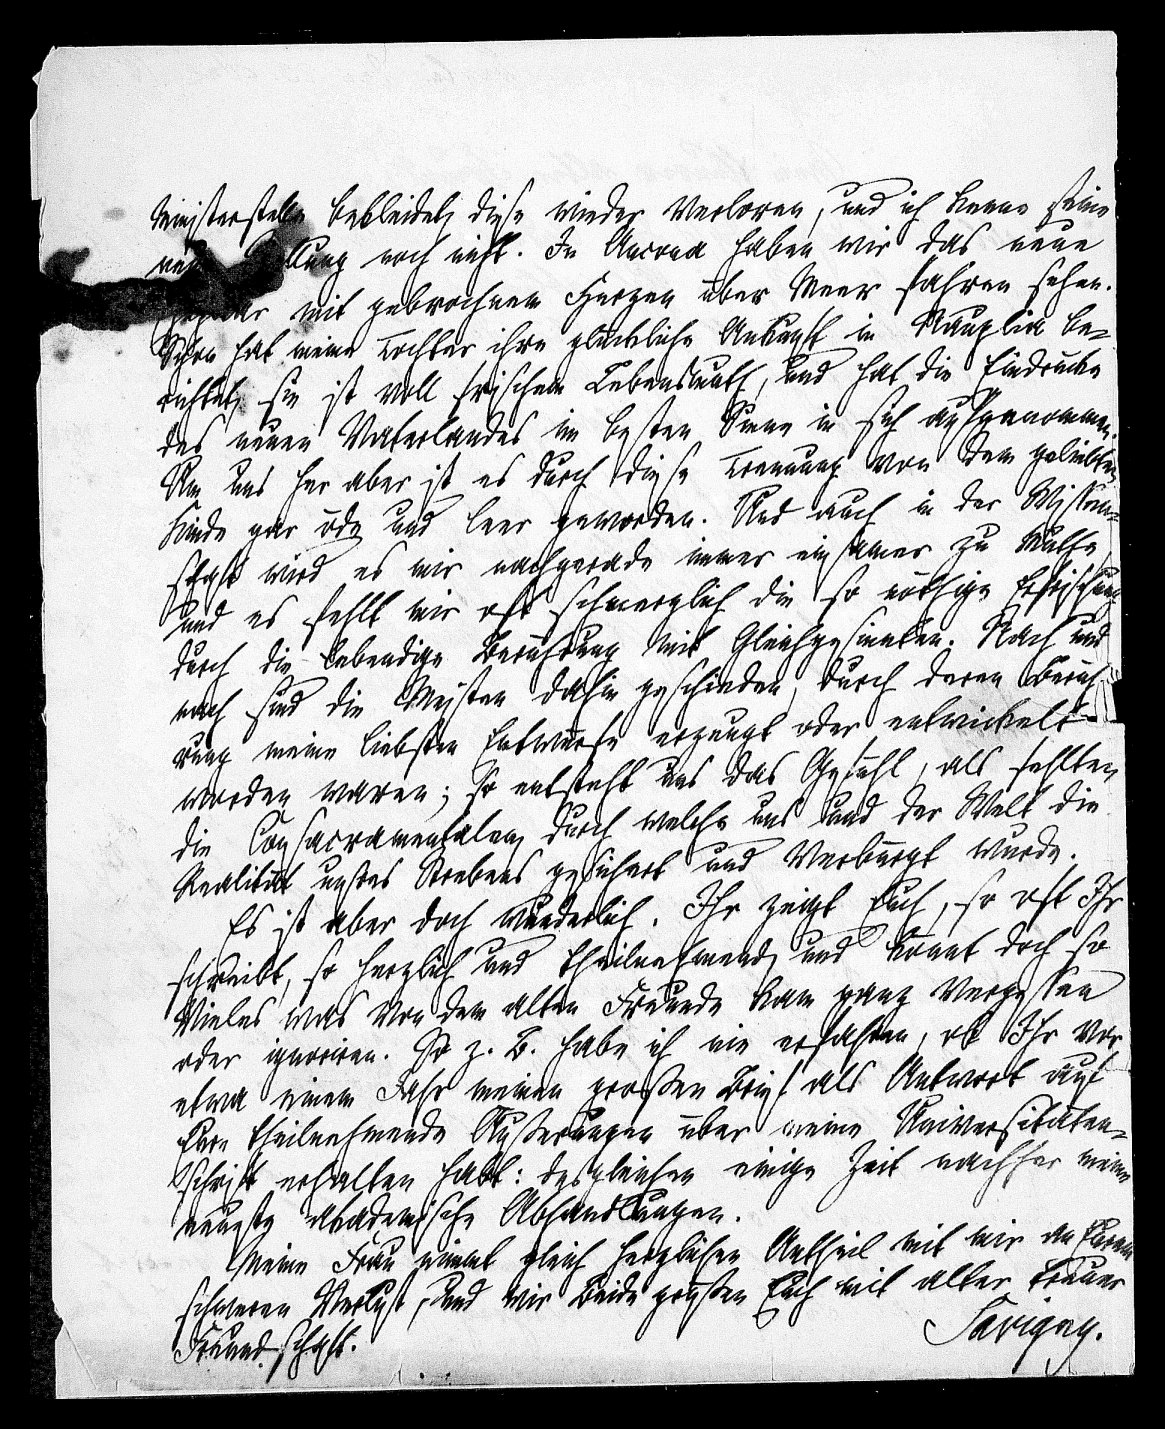 Ministerstelle bekleidet, diese wieder verloren, und ich kenne seine
neue Stellung noch nicht. In Ancona haben wir das neue
Ehepaar mit gebrochnem Herzen über Meer fahren sehen.
Schon hat meine Tochter ihre glückliche Ankunft in Nauplia be-
richtet, sie ist voll frischem Lebensmuth, und hat die Eindrücke
des neuen Vaterlandes im besten Sinne in sich aufgenommen.
Um uns her aber ist es durch diese Trennung von dem geliebten
Kinde gar öde und leer geworden. Und auch in der Wissen-
schaft wird es mir nachgerade immer einsamer zu Muthe,
und es fehlt mir oft schmerzlich die so nöthige Erfrischung
durch die lebendige Berührung mit Gleichgesinnten. Nach und
nach sind die Meisten dahin geschieden, durch deren Berüh-
rung meine liebsten Entwürfe erzeugt oder entwickelt
worden waren; so entsteht uns das Gefühl, als fehlten
die Consacramentalen, durch welche uns und der Welt die
Realität unsres Strebens gesichert und verbürgt wurde.
Es ist aber doch wunderlich. Ihr zeigt Euch, so oft Ihr
schreibt, so herzlich und theilnehmend, und könnt doch so
Vieles was von dem alten Freunde kam ganz vergessen
oder ignoriren. So z. B. habe ich nie erfahren, ob Ihr vor
etwa einem Jahr meinen großen Brief als Antwort auf
Eure theilnehmende Äußerungen über meine Universitäten-
schrift erhalten habt: desgleichen einige Zeit nachher meine
neueste akademische Abhandlungen.
Meine Frau nimmt gleich herzlichen Antheil mit mir an Eurem
schweren Verlust, und wir Beide grüßen Euch mit alter treuer
Freundschaft.
Savigny.